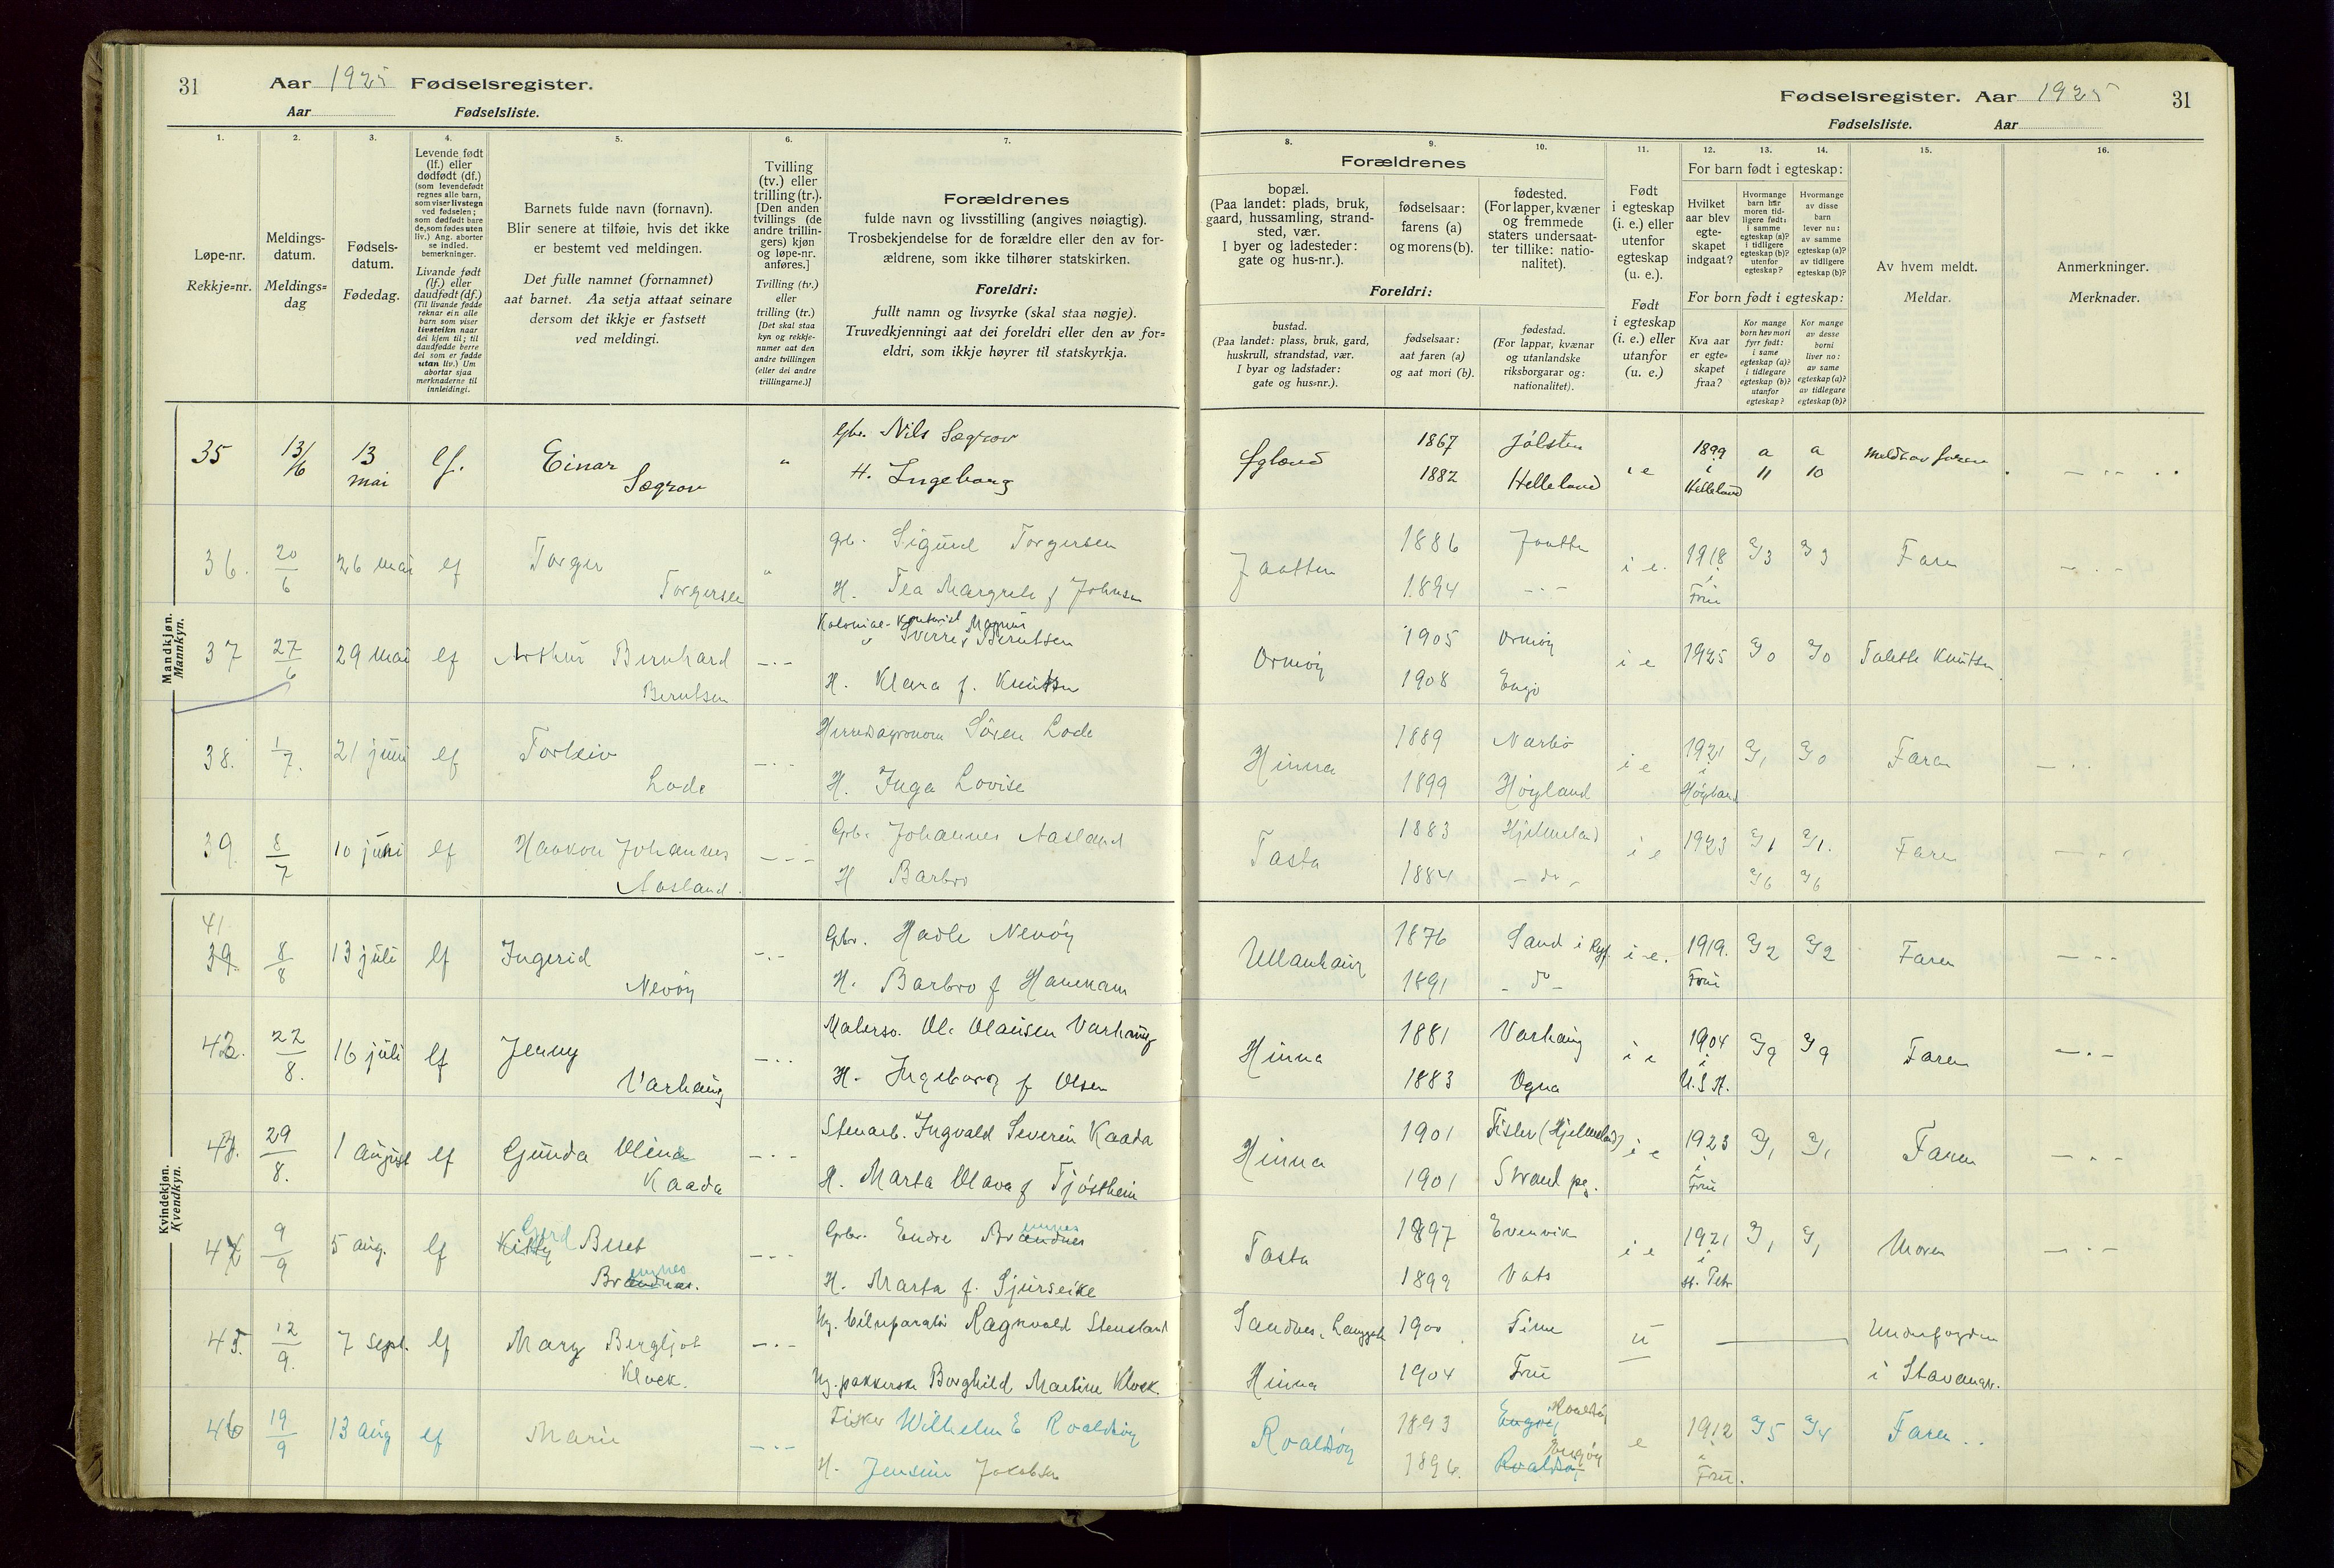 31 Aar 1925 Fødselsregister.
Aar Fødselsliste.
1. 2. 3. 4. 5. 6. 7.
Løpe-nr.
Rekkje=nr.
Meldings-
datum.
Meldings=
dag
Fødsels-
datum.
Fødedag.
Levende født
(lf.) eller
dødfødt (df.)
(som levendefødt
regnes alle barn,
som viser livstegn
ved fødselen;
som dødfødt bare
de, som fødes uten
liv.) Ang. aborter
se indled.
bemerkninger.
Livande født
(lf.) eller
daudfødt (df.)
(Til livande fødde
reknar ein alle
barn som viser
livsteikn naar
dei kjem til; til
daudfødde berre
dei som er fødde
utan liv.) Um
abortar sjaa
merknaderne til
innleidingi.
Barnets fulde navn (fornavn).
Blir senere at tilføie, hvis det ikke
er bestemt ved meldingen.
Det fulle namnet (fornamnet)
aat barnet. Aa setja attaat seinare
dersom det ikkje er fastsett
ved meldingi.
Tvilling
(tv.) eller
trilling (tr.).
[Den anden
tvillings (de
andre trillin-
gers) kjøn
og løpe-nr.
anføres.]
Tvilling (tv.)
eller
trilling (tr.)
[Det skal staa
kyn og rekkje-
numer aat den
andre tvillingen
(eller dei andre
trillingarne.)]
Forældrenes
fulde navn og livsstilling (angives nøiagtig).
Trosbekjendelse for de forældre eller den av for-
ældrene, som ikke tilhører statskirken.
Foreldri:
fullt namn og livsyrke (skal staa nøgje).
Truvedkjenningi aat dei foreldri eller den av for=
eldri, som ikkje høyrer til statskyrkja.
Mandkjøn.
Mannkyn.
35 13/6 13 mai lf. Einar Sægrov " Gbr. Nils Sægrov
H. Ingeborg
36. 20/6 26 mai lf Torger Torgersen " Gbr. Sigurd Torgersen
H. Tea Margrete f Johnsen
37 27/6 29 mai lf Arthur Bernhard Berntsen - . - Kolonial-
Sverre Berntsen
H. Klara f. Knutsen
38. 1/7. 21 juni lf Torleiv Lode - . - Herredsagronom Sören Lode
H. Inga Lovise
39. 8/7 10 juni lf Haakon Johannes Aasland. - - - Gbr. Johannes Aasland
H Barbro
Kvindekjøn.
Kvendkyn.
41
39. 8/8 13 juli lf Ingerid Nevöy - . - Gbr. Hadle Nevöy
H. Barbro f Hammam
42. 22/8. 16 juli lf Jenny Varhaug - . - Malersv. Ole Olausen Varhaug
H. Ingeborg f Olsen
43. 29/8. 1 august lf Gunda Olina Kaada - . - Stenarb. Ingvald Severin Kaada
H. Marta Olava f Tjöstheim
44 9/9 5 aug. lf Kitty Gerd Beret - - - Gbr. Endre
H. Marta f. Gjurseike
45. 12/9. 7 sept. lf Mary Bergljot Klock. - . - Ug. bilreparatör Ragnvald Stensland
Ug. pakkerske Borghild Martine Klock.
46 19/9 13 aug lf Marie - . - Fisker Wilhelm E Roaldsöy
H. Jensine Jakobsen
Fødselsregister. Aar 1925 31
Fødselsliste. Aar
8. 9. 10. 11. 12. 13. 14. 15. 16.
Forældrenes
bopæl.
(Paa landet: plads, bruk,
gaard, hussamling, strand-
sted, vær.
I byer og ladesteder:
gate og hus-nr.).
fødselsaar:
farens (a)
og morens (b).
fødested.
(For lapper, kvæner
og fremmede
staters undersaat-
ter tillike: natio-
nalitet).
Foreldri:
bustad.
(Paa landet: plass, bruk, gard,
huskrull, strandstad, vær.
I byar og ladstader:
gate og hus=nr.).
fødselsaar:
aat faren (a)
og aat mori (b).
fødestad.
(For lappar, kvænar
og utanlandske
riksborgarar og:
nationalitet).
Født
i egteskap
(i. e.) eller
utenfor
egteskap
(u. e.).
Født
i egteskap
(i. e.) eller
utanfor
(u. e.)
For barn født i egteskap:
Hvilket
aar blev
egte-
skapet
indgaat?
Hvormange
barn har
moren tid-
ligere født:
i samme
egteskap (a)?
i tidligere
egteskap (b)?
utenfor
egteskap?
Hvormange
av disse
barn
lever nu:
av samme
egteskap (a)?
av tidligere
egteskap (b)?
For born født i egteskap:
Kva aar
er egte=
skapet
fraa?
Kor mange
born hev mori
fyrr født:
i same
egteskap (a)?
i tidlegare
egteskap (b)?
utanfor
egteskap?
Kor mange
av desse
borni
liver no:
av same
egteskap (a)?
av tidlegare
egteskap (b)?
Av hvem meldt.
Meldar.
Anmerkninger.
Merknader.
1867 Jölster
1882 Helleland i e 1899 i Helleland a 11 a 10 - - -
Jaatten 1886 Jaatten
1894 - . - i e. 1918 i Frue a) 3 a) 3 Faren - . -
Ormöy 1905 Ormöy
1908 Engö i e 1925 a) 0 a) 0 Talette Knutsen
Hinna 1889 Narbö
1899 Höyland i e 1921 i Höyland a) 1 a) 0 Faren - . .
Tasta 1883 Hjelmeland
1884 - do - i e 1923 a) 1 a) 1. Faren - . .
a) 6 a) 6
Ullanhaug 1876 Sand i Ryf.
1891 - do - i e. 1919. Frue a) 2 a) 2 Faren - - -
Hinna 1881 Varhaug
1883 Ogna i e 1904 i U.S.A. a) 9 a) 9 Faren - . -
Hinna 1901 Fister (Hjelmeland)
1901 Strand pg. i e 1923 i Frue a) 1 a) 1 Faren - . -
Tasta 1897 Evenvik
1899 Vats i e 1921 i st. Petr a) 1 a) 1 Moren - . -
Sandnes, Langgate 1900 Time
Hinna 1904 Frue u i Stavanger.
Roaldsöy 1893 Engöy Roaldsöy
1896. Roaldsöy Engöy e 1912 i Frue. a) 5 a) 4 Faren . .